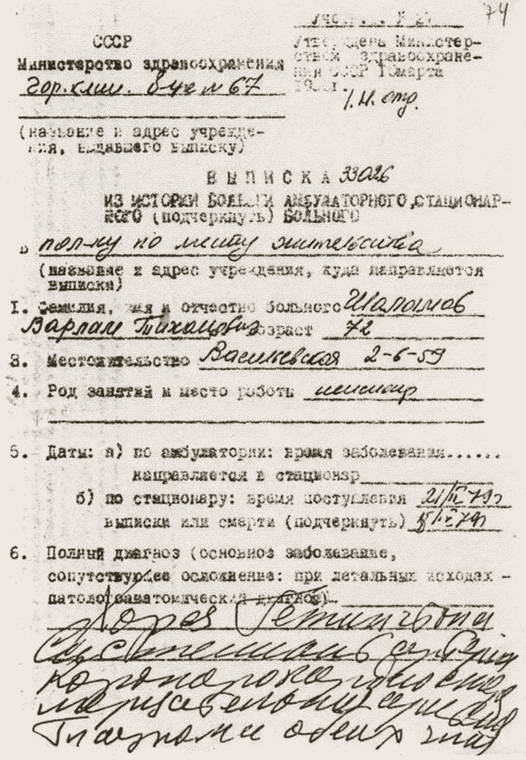 74
СССР
Министерство здравоохранения
гор. клин. б-це № 67
Утверждена Министер-
ством здравоохране-
ния СССР 1 марта
(название и адрес учрежде-
ния, выдавшего выписку)
ВЫПИСКА 33026
ИЗ ИСТОРИИ БОЛЕЗНИ АМБУЛАТОРНОГО, СТАЦИОНАР-
НОГО (подчеркнуть) БОЛЬНОГО
в пол-ку по месту жительства
(название и адрес учреждения, куда направляется
выписка)
1. Фамилия, имя и отчество больного Шаламов
Варлам Тихонович возраст 72
3. Местожительство Васильевская 2-6-59
4. Род занятий и место работы пенсионер
5. Даты: а) по амбулатории: время заболевания......
направляется в стационар
б) по стационару: время поступления
выписки или смерти (подчеркнуть)
6. Полный диагноз (основное заболевание,
сопутствующее осложнение: при летальных исходах -
патологоанатомический диагноз)
Хорея Гетингтона
коронарокардиосклероз
Глаукома обеих глаз